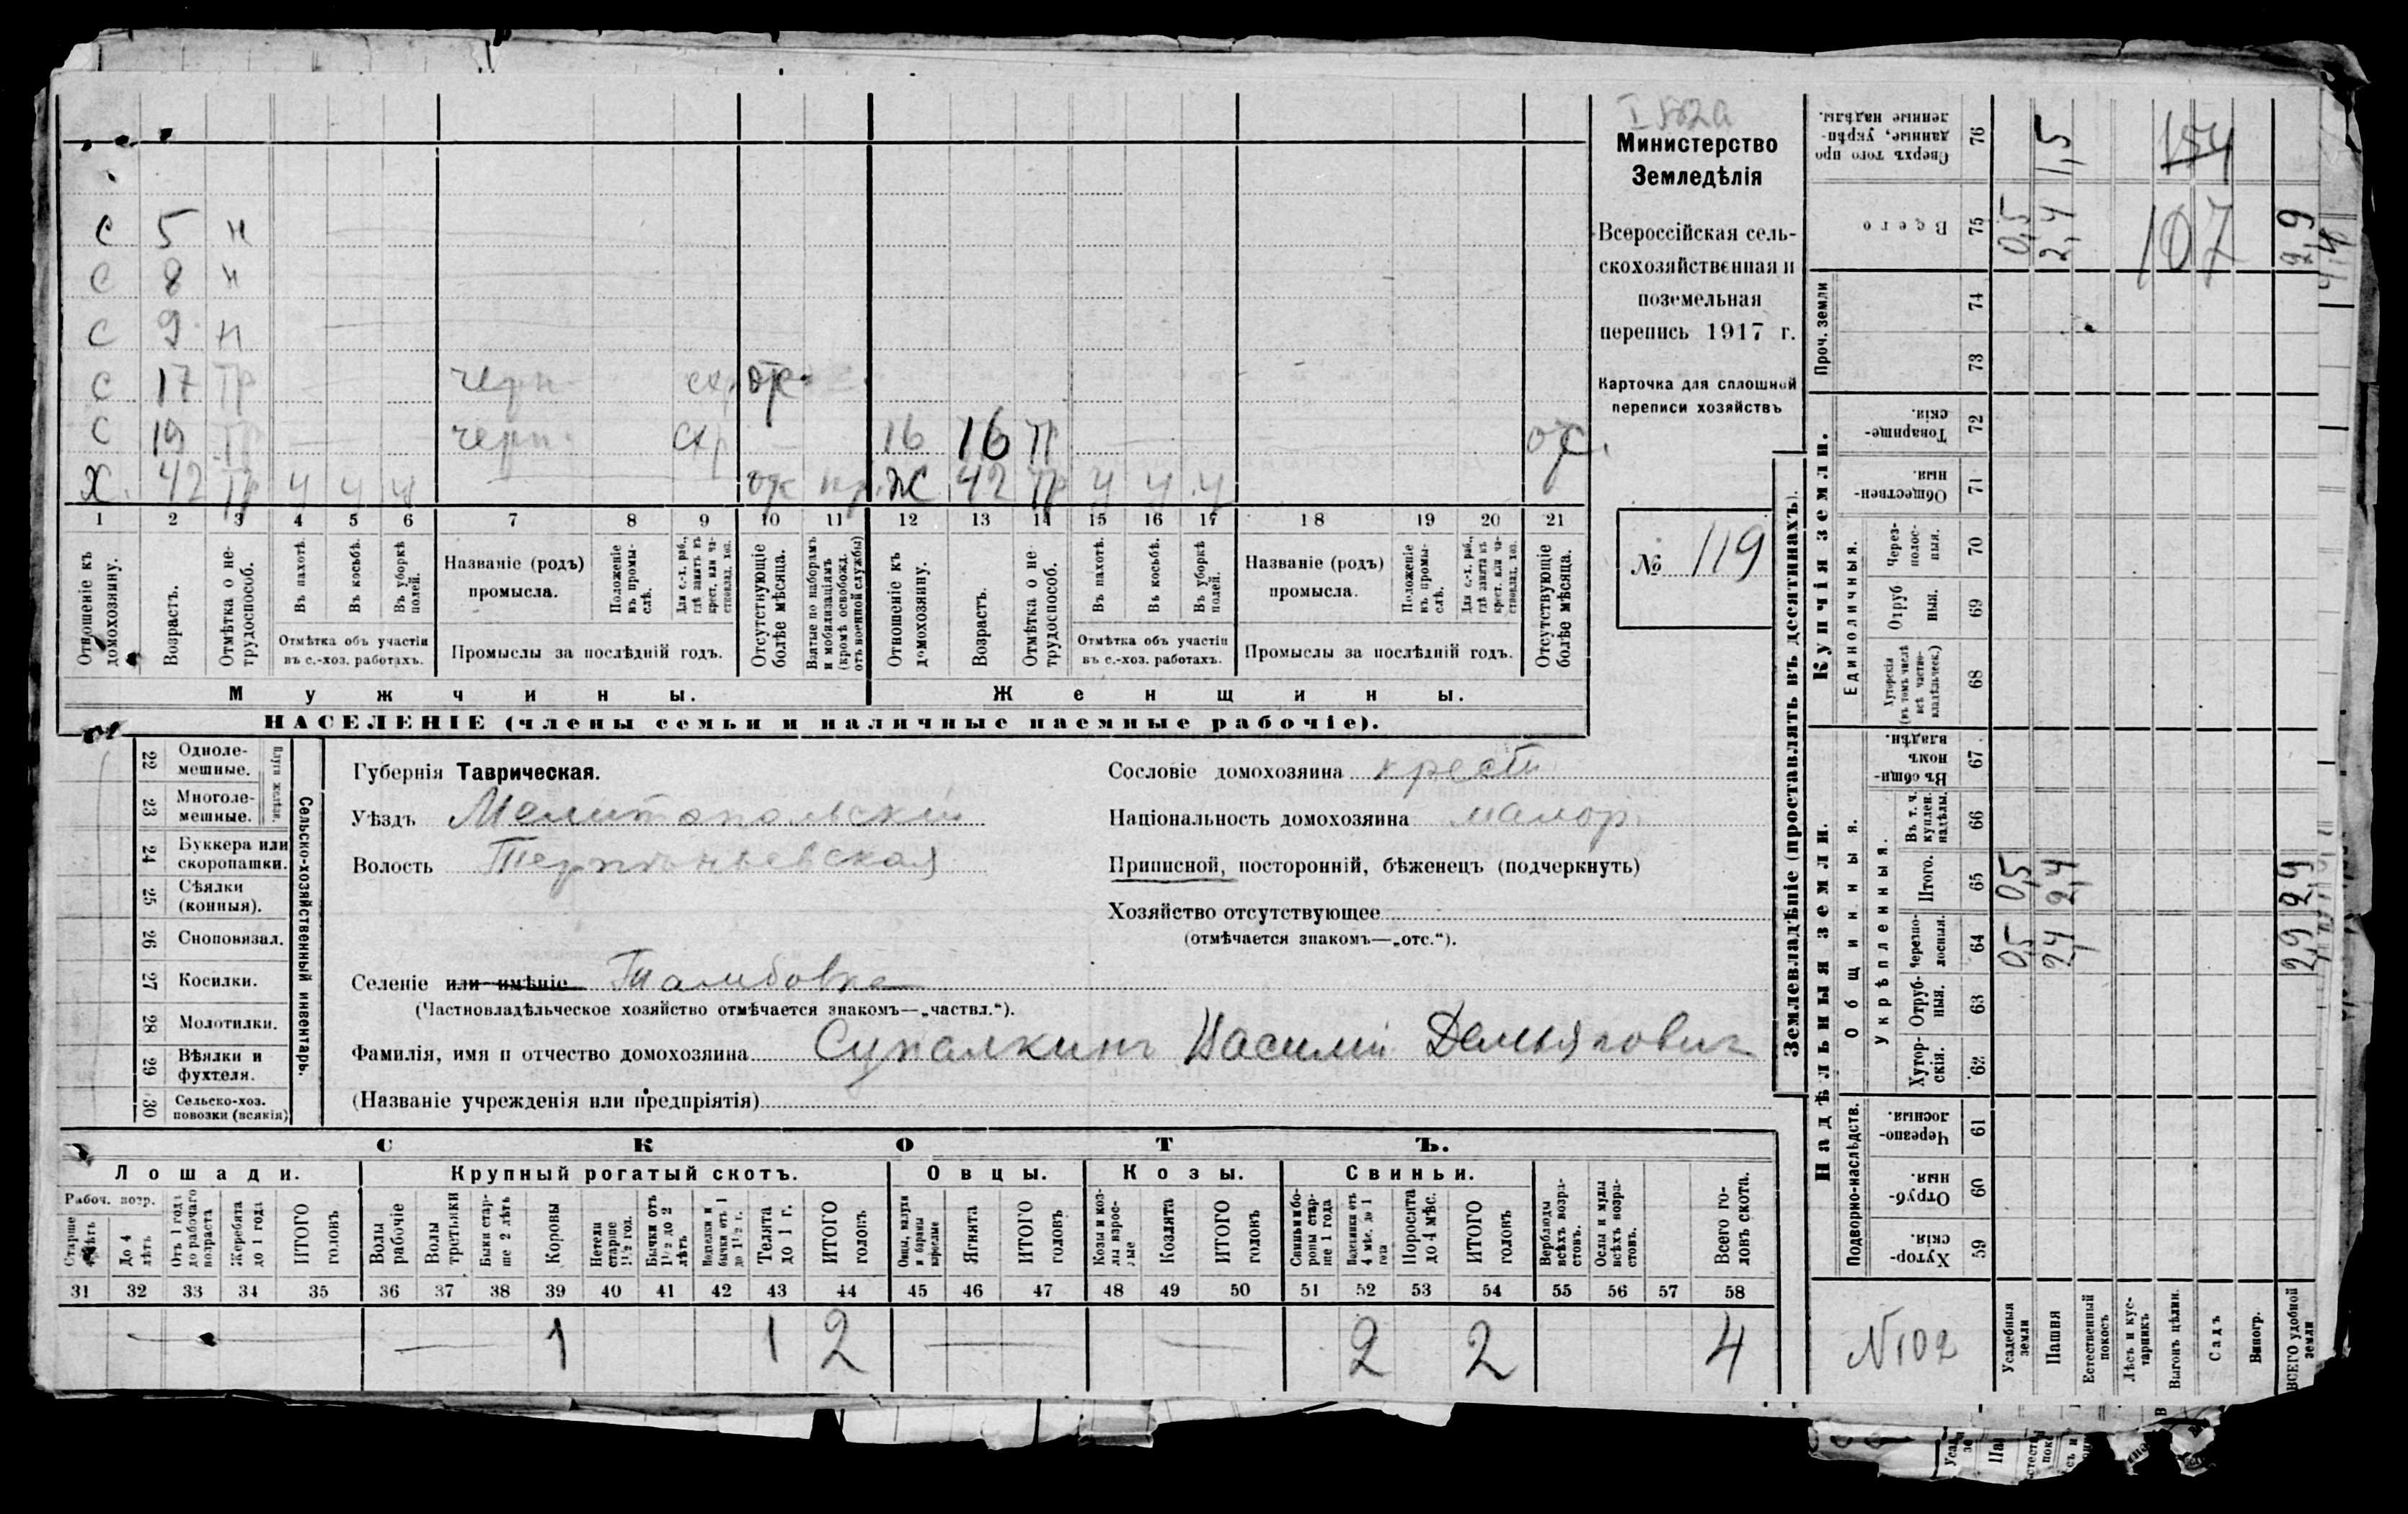 Министерство
Земледѣлія
Всероссійская сель-
скохозяйственная и
поземельная
перепись 1917 г.
Карточка для сплошной
переписи хозяйствъ
№ 119
С 5 н
С 8 н
С 9 н
С 17 тр черн
С 19 тр черн схр 16 16 тр
Х 42 тр у у у Ж 42 тр у у у
1 2 3 4 5 6 7 8 9 10 11 12 13 14 15 16 17 18 19 20 21
Отношеніе къ домохозяину.
Возрастъ.
Отмѣтка о не-трудоспособ.
Въ пахотѣ.
Въ косьбѣ.
Въ уборкѣ полей.
Отмѣтка объ участіи
въ с.-хоз. работахъ.
Названіе (родъ)
промысла.
Положеніе въ промы-слѣ.
Для с.-х. раб., гдѣ занятъ въ крест. или ча-стновлад. хоз.
Промыслы за послѣдній годъ.
Отсутствующіе болѣе мѣсяца.
Взятые по наборамъ и мобилизаціямъ (кромѣ освобожд. отъ военной службы)
Отношеніе къ домохозяину.
Возрастъ.
Отмѣтка о не трудоспособ.
Въ пахотѣ.
Въ косьбѣ.
Въ уборкѣ полей.
Отмѣтка объ участіи
въ с.-хоз. работахъ.
Названіе (родъ)
промысла.
Положеніе въ промы-слѣ.
Для с.-х. раб., гдѣ занята въ крест. или ча-стновлад. хоз.
Промыслы за послѣдній годъ.
Отсутствующіе болѣе мѣсяца.
Мужчины.
Женщины.
НАСЕЛЕНІЕ (члены семьи и наличные наемные рабочіе).
22 Одноле-мешные.
23 Многоле-мешные.
Плуги желѣзн.
24 Буккера или скоропашки.
25 Сѣялки (конныя).
26 Сноповязал.
27 Косилки.
28 Молотилки.
29 Вѣялки и фухтеля.
30 Сельско-хоз. повозки (всякія)
Сельско-хозяйственный инвентарь.
Губернія Таврическая.
Уѣздъ Мелитопольскій
Волость
Селеніе или имѣніе Тамбовка
(Частновладѣльческое хозяйство отмѣчается знакомъ—„частвл.“).
Фамилія, имя и отчество домохозяина Супалкинъ Василій Демьяновичъ
(Названіе учрежденія или предпріятія)
Сословіе домохозяина крест
Національность домохозяина малор
Приписной, посторонній, бѣженецъ (подчеркнуть)
Хозяйство отсутствующее
(отмѣчается знакомъ—„отс.“).
СКОТЪ.
Лошади. Крупный рогатый скотъ. Овцы. Козы. Свиньи.
Рабоч. возр.
Старше 4 лѣтъ
До 4 лѣтъ
Отъ 1 года до рабочаго возраста
Жеребята до 1 года
ИТОГО головъ
Волы рабочіе
Волы третьяки
Быки стар-ше 2 лѣтъ
Коровы
Нетели старше 1 1/2 год.
Бычки отъ 1 1/2 до 2 лѣтъ
Телята до 1 г.
ИТОГО головъ
Овцы, валухи и бараны взрослые
Ягнята
ИТОГО головъ
Козы и коз-лы взрос-лые
Козлята
ИТОГО головъ
Свиньи и бо-ровы стар-ше 1 года
Подсвинки отъ 4 мѣс. до 1 года
Поросята до 4 мѣс.
ИТОГО головъ
Верблюды всѣхъ возра-стовъ.
Ослы и мулы всѣхъ возра-стовъ.
Всего го-ловъ скота.
31 32 33 34 35 36 37 38 39 40 41 42 43 44 45 46 47 48 49 50 51 52 53 54 55 56 57 58
1 1 2 2 2 4
Землевладѣніе (проставлять въ десятинахъ).
Надѣльныя земли.
Подворно-наслѣдств.
Хутор-скія. 59
Отруб-ныя. 60
Черезпо-лосныя. 61
Общинныя.
Укрѣпленныя.
Хутор-скія. 62
Отруб-ныя. 63
Черезпо-лосныя. 64
Итого. 65
Въ т. ч. куплен. надѣлы. 66
Въ общи-номъ владѣн. 67
Купчія земли.
Единоличныя.
Хуторскія (въ томъ числѣ всѣ частно-владѣльческ.) 68
Отруб ныя. 69
Через-полос-ныя. 70
Обществен-ныя. 71
Товарище-скія. 72
Проч. земли
73 74
Всего 75
Сверхъ того про данные, укрѣп-ленные надѣлы. 76
Усадебныя земли 0,5 0,5 0,5
Пашня 2,4 2,4 2,4 1,5
Естественный покосъ
Лѣсъ и кус-тарникъ
Выгонъ цѣлин.
Садъ
Виногр.
ВСЕГО удобной земли 2,9 2,9 2,9
107
154
N102